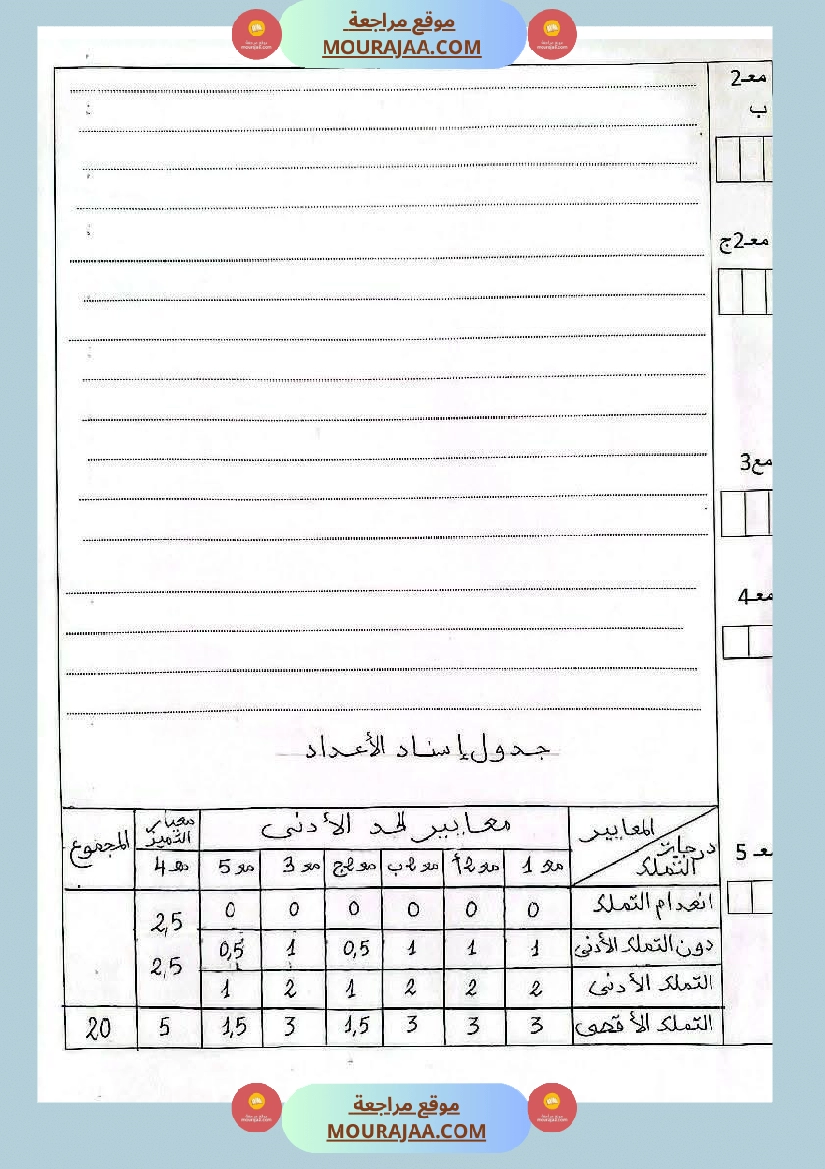 موقع مراجعة
MOURAJAA.COM
معـ2
ب
معـ2ج
مع3
معـ4
معـ 5
جدول إسناد الأعداد
المعايير
درجات
التملك
معايير الحد الأدنى
معيار
التميز
المجموع
معـ 1
معـ 2أ
معـ 2ب
معـ 2ج
معـ 3
معـ 5
معـ 4
انعدام التملك 0 0 0 0 0 0
2,5
دون التملك الأدنى 1 1 1 0,5 1 0,5
2,5
التملك الأدنى 2 2 2 1 2 1
التملك الأقصى 3 3 3 1,5 3 1,5 5 20
موقع مراجعة
MOURAJAA.COM